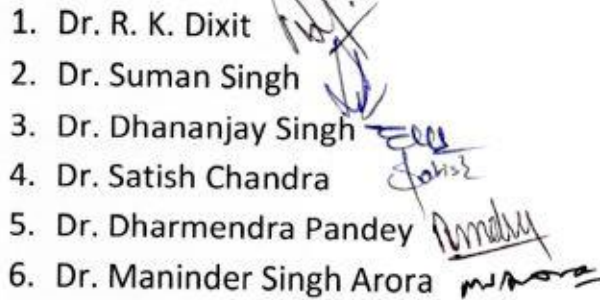 1. Dr. R. K. Dixit
2. Dr. Suman Singh
3. Dr. Dhananjay Singh
4. Dr. Satish Chandra Satish
5. Dr. Dharmendra Pandey
6. Dr. Maninder Singh Arora